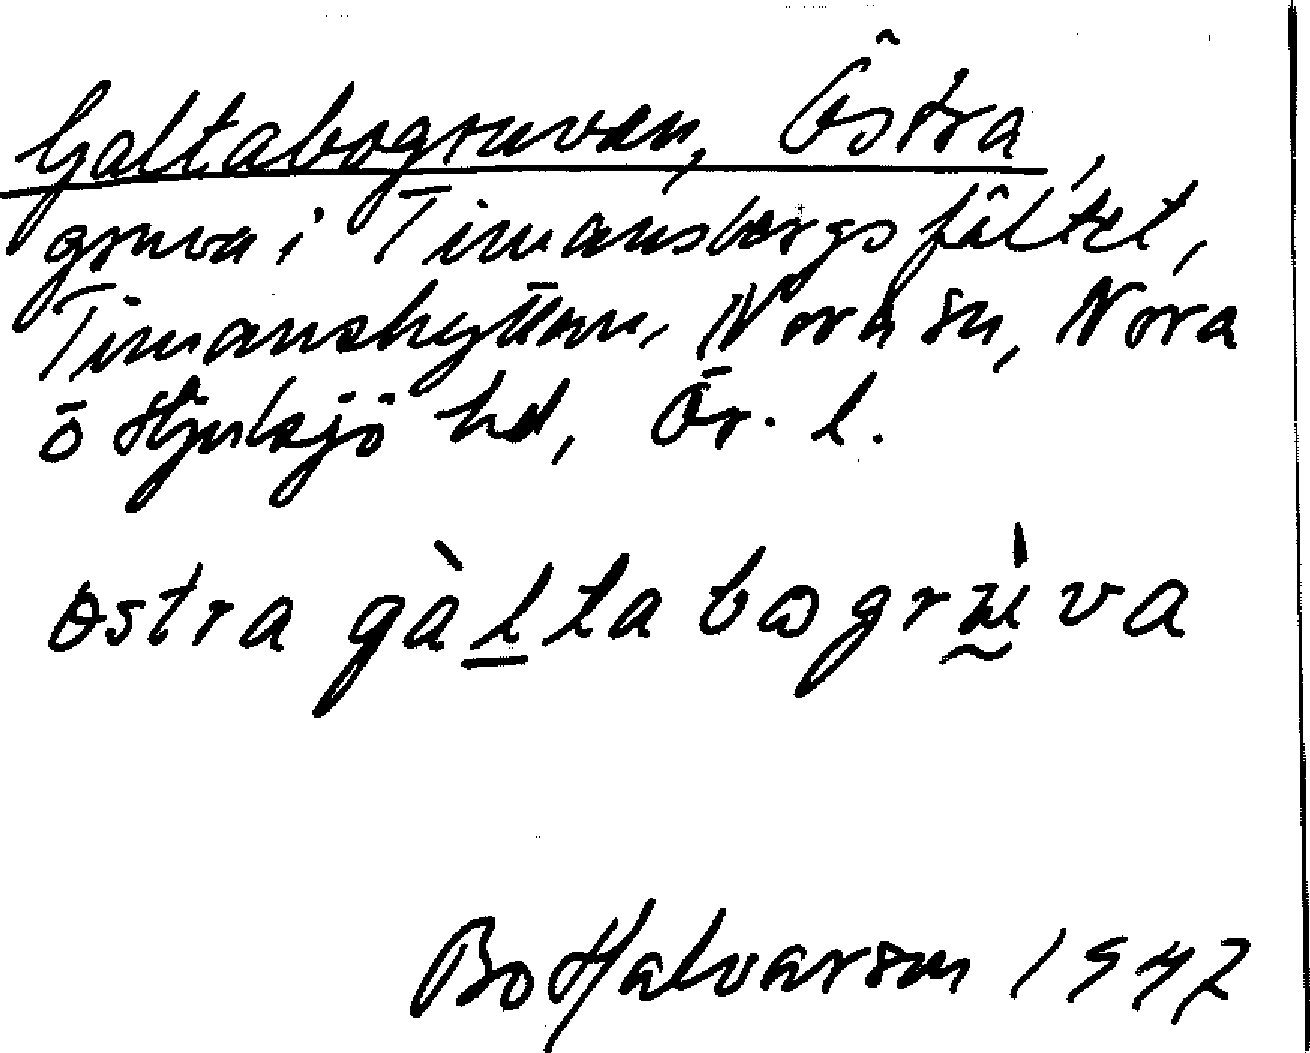 Galtabogruvan, Östra,
gruva i Timansbergsfältet,
Timanshyttan, Nora sn, Nora
o Hjulsjö hd, Ör. l.
östra gàltabogruva
Bo Halvarson 1947